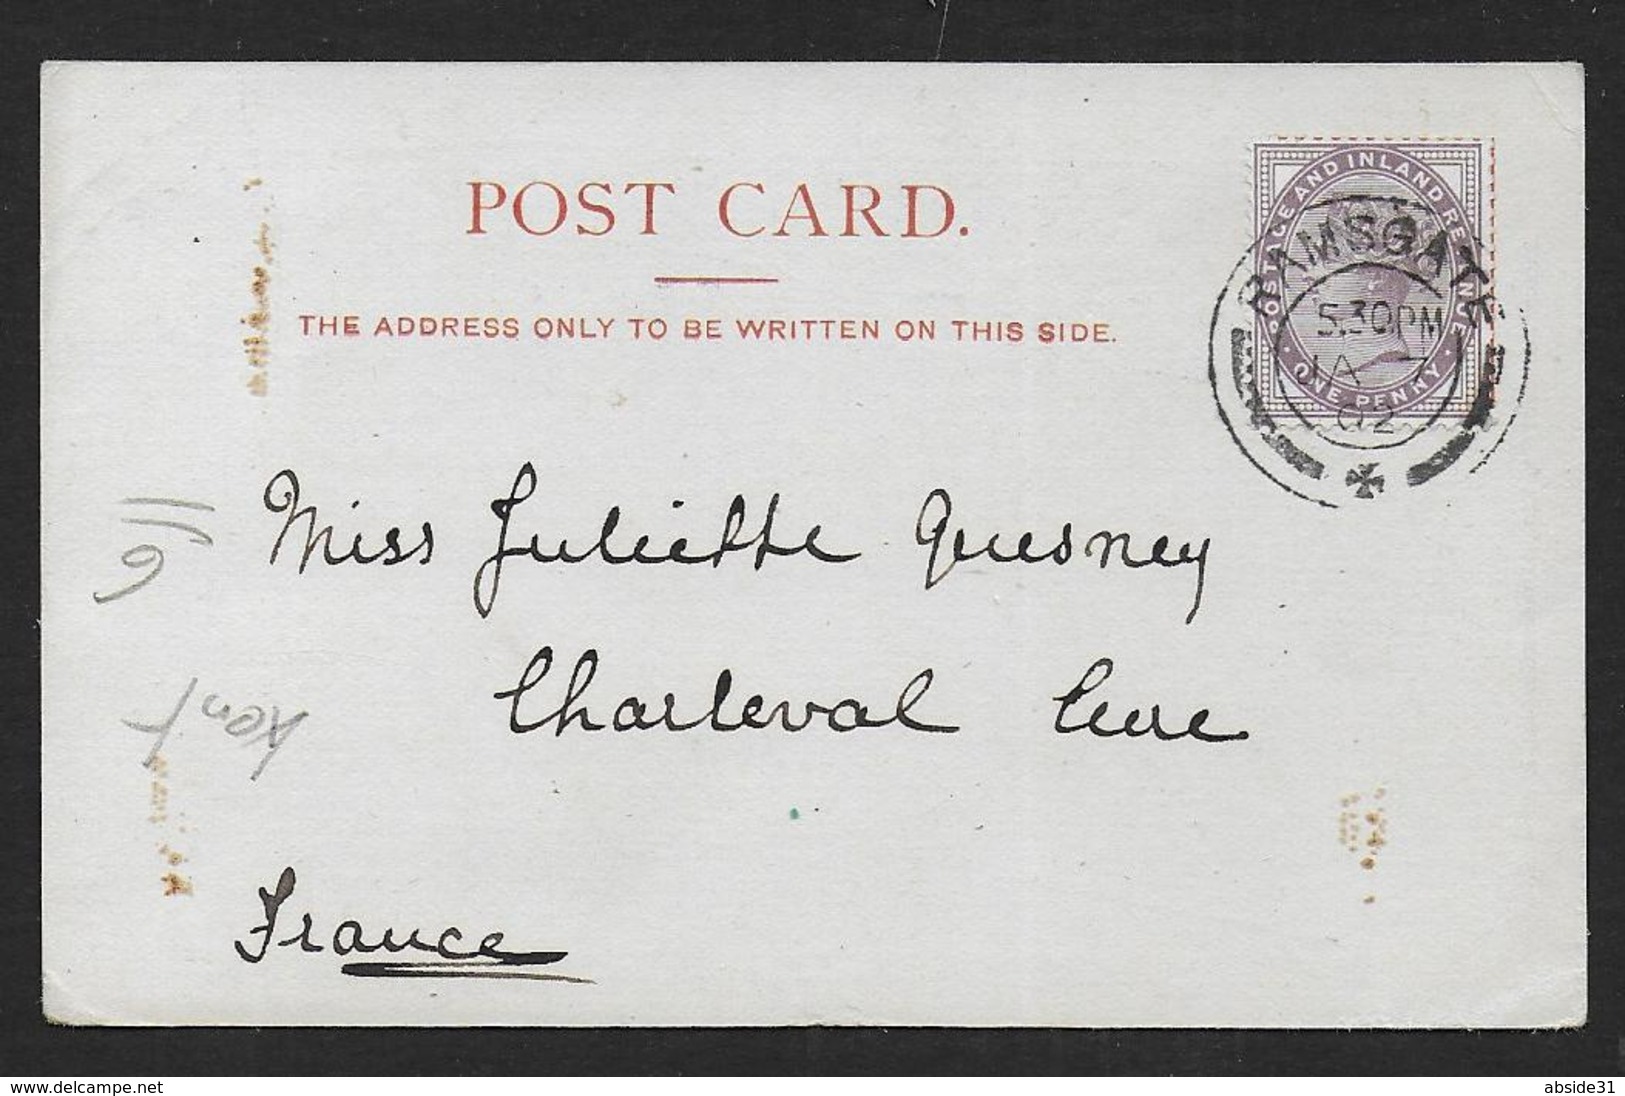 POST CARD.
THE ADDRESS ONLY TO BE WRITTEN ON THIS SIDE.
POSTAGE AND INLAND REVENUE
ONE PENNY
RAMSGATE
5.30PM
JA 7
02
Miss Juliette Quesney
Charleval Eure
France
Kent
www.delcampe.net
abside31